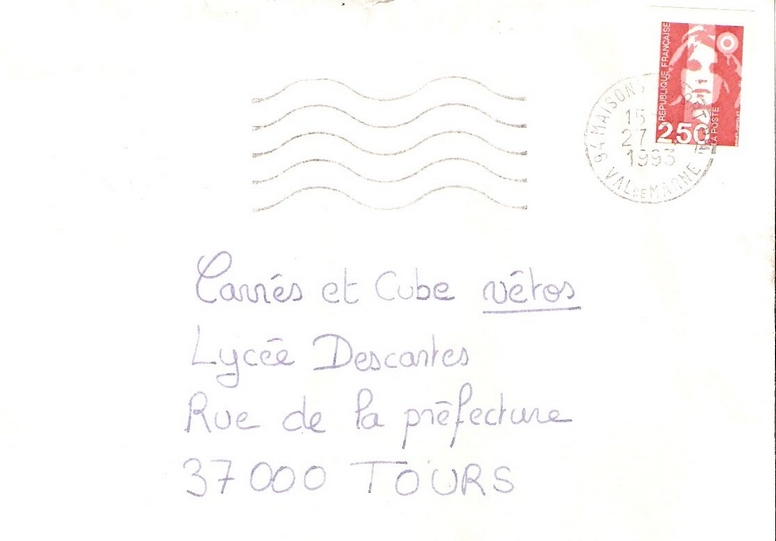 RÉPUBLIQUE FRANÇAISE
2,50
LA POSTE
94 MAISONS
15
27
1993
VAL DE MARNE
Carrés et Cube vétos
Lycée Descartes
Rue de la préfecture
37000 TOURS